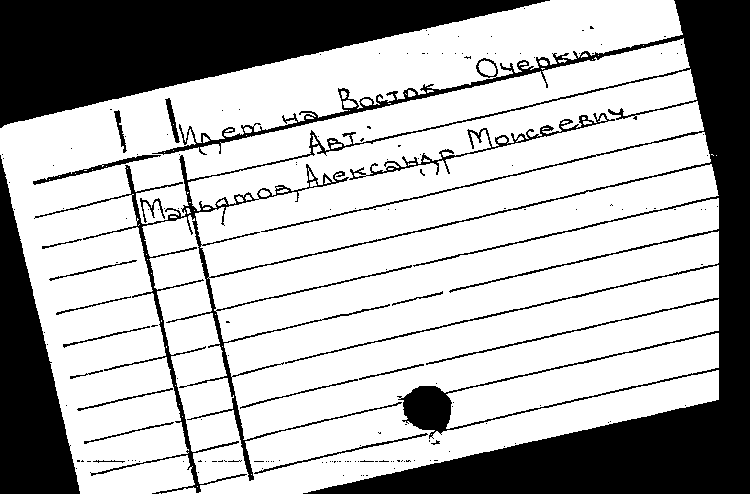 Идет на Восток Очерки.
Авт.:
Марьямов, Александр Моисеевич.